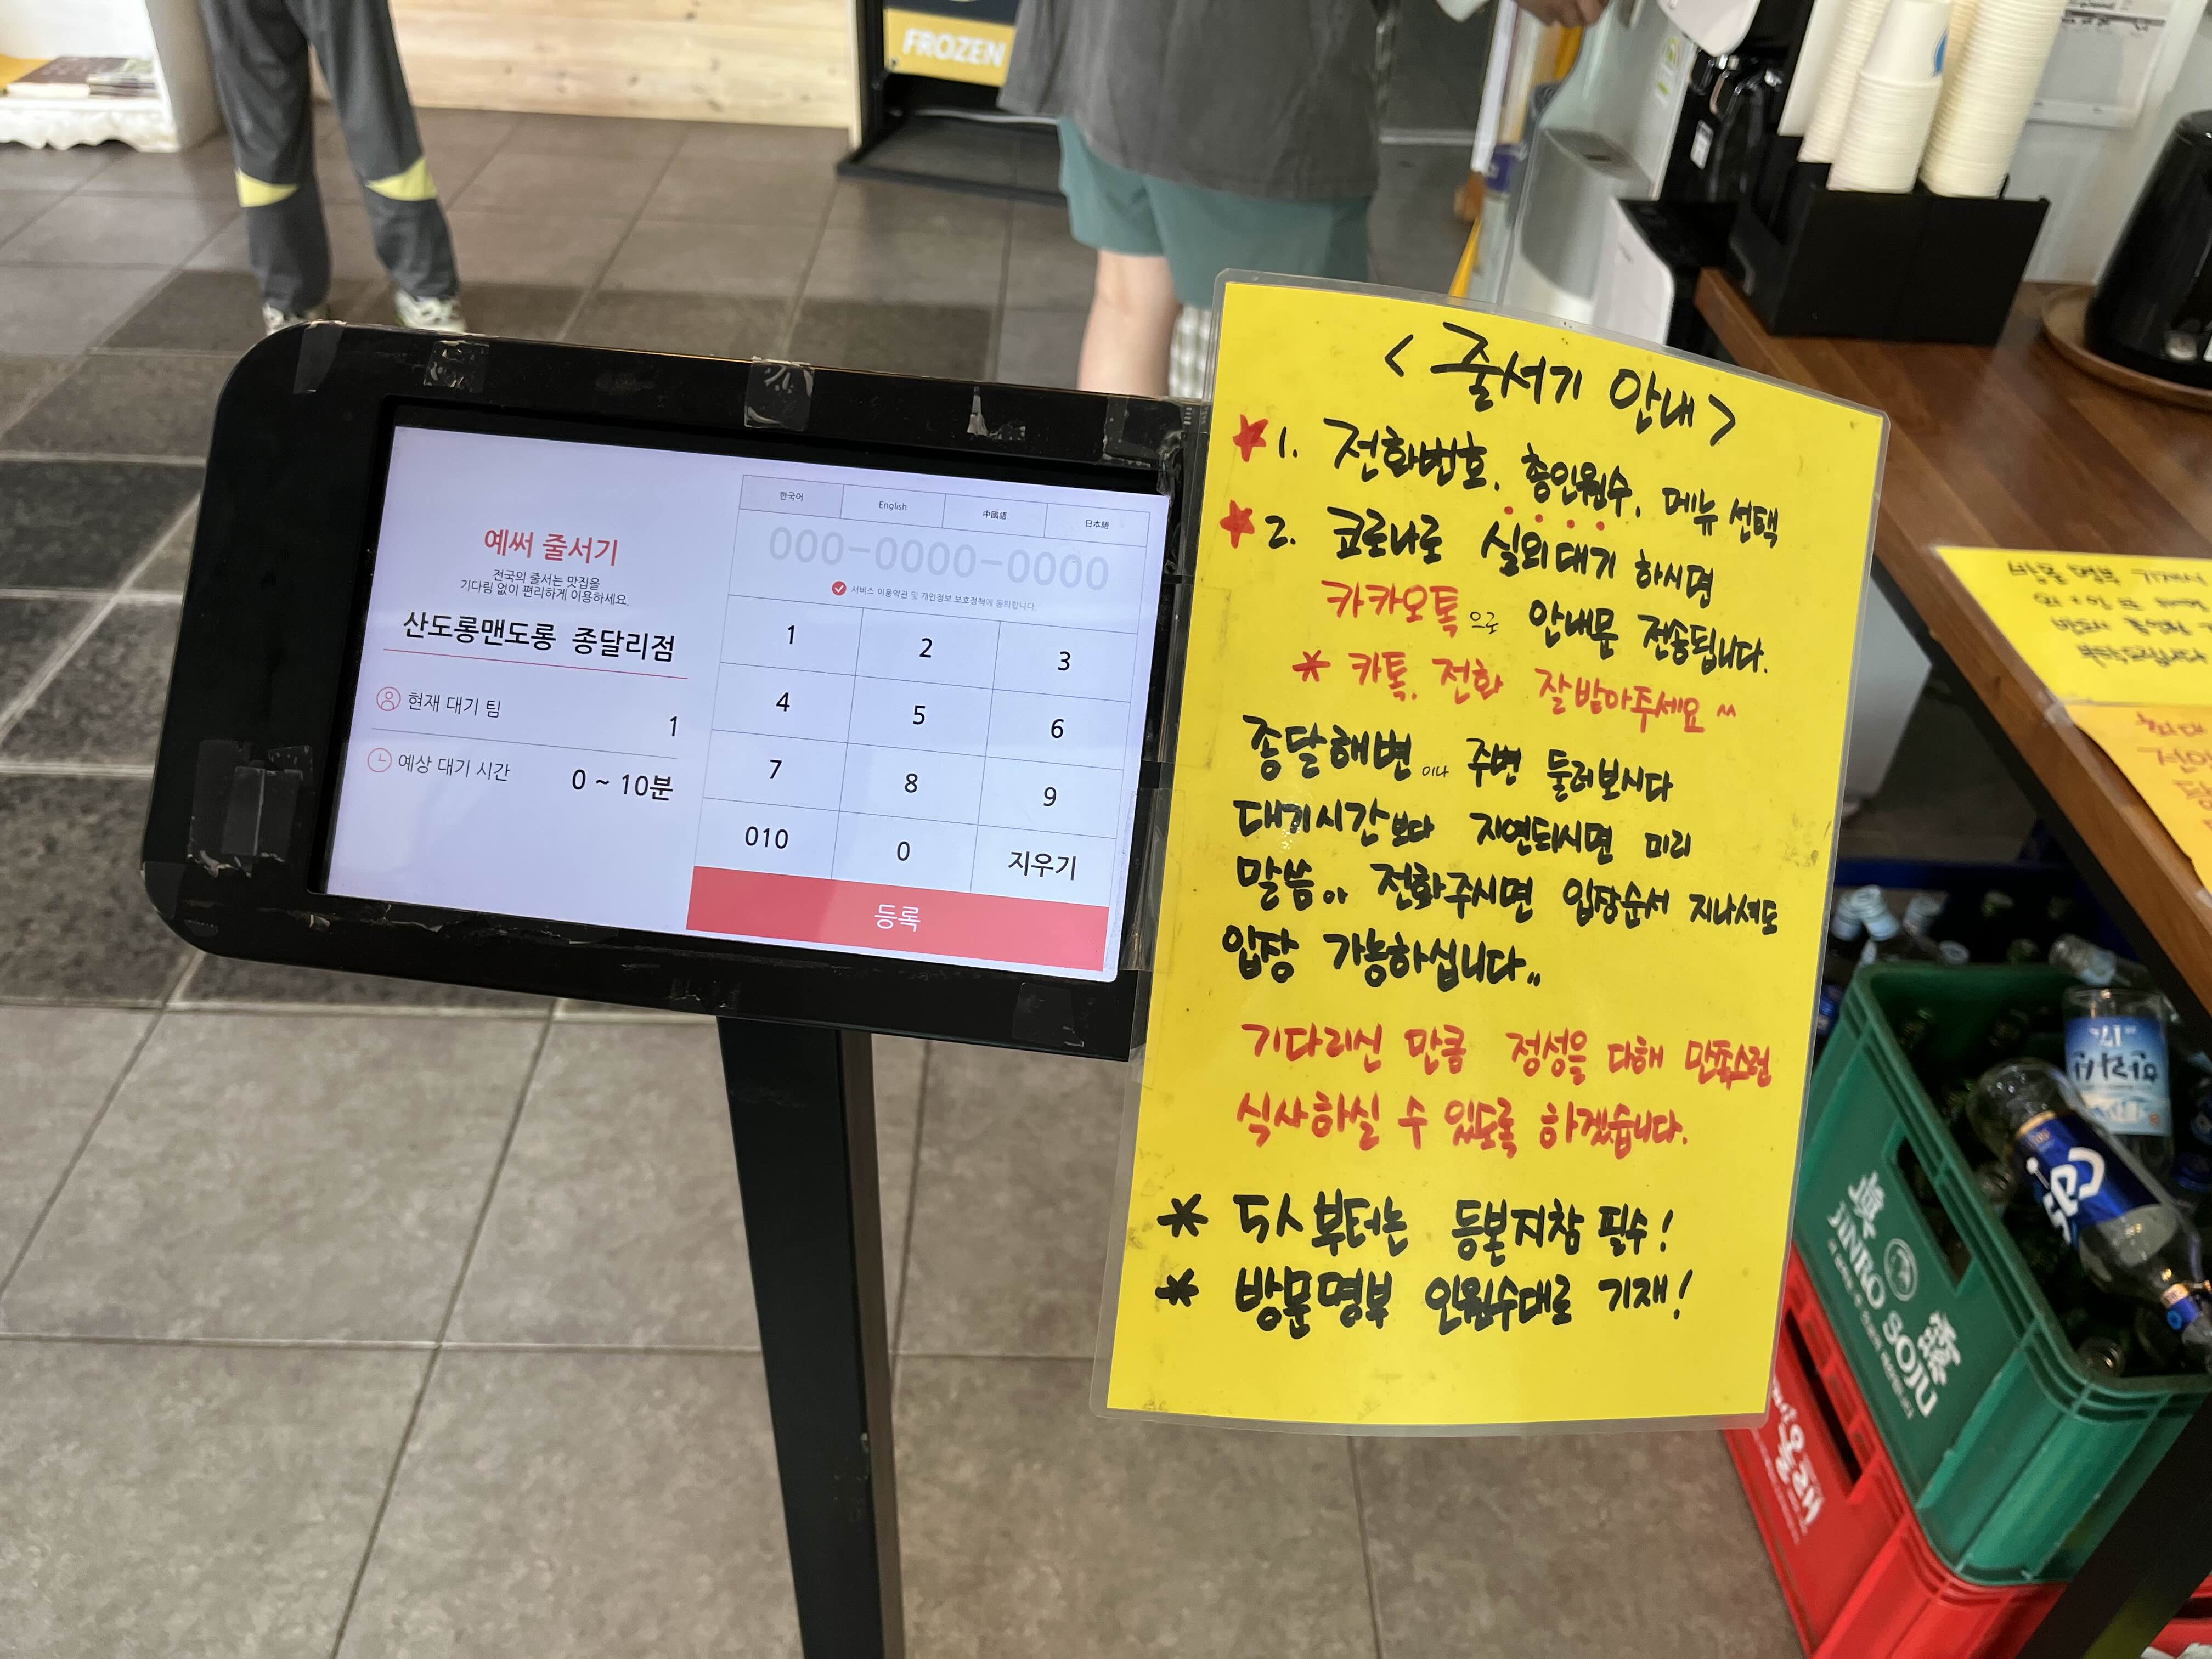 FROZEN
한국어
English
中國語
日本語
000-0000-0000
서비스 이용약관 및 개인정보 보호정책에 동의합니다.
예써 줄서기
전국의 줄서는 맛집을
기다림 없이 편리하게 이용하세요.
산도롱맨도롱 종달리점
현재 대기 팀 1
예상 대기 시간 0 ~ 10분
1 2 3
4 5 6
7 8 9
010 0 지우기
등록
< 줄서기 안내 >
★1. 전화번호, 총인원수, 메뉴 선택
★2. 코로나로 실외대기 하시면
카카오톡으로 안내문 전송됩니다.
* 카톡, 전화 잘받아주세요 ^^
종달해변이나 주변 둘러보시다
대기시간보다 지연되시면 미리
말씀.. 전화주시면 입장순서 지나셔도
입장 가능하십니다..
기다리신 만큼 정성을 다해 만족스런
식사하실 수 있도록 하겠습니다.
* 5人부터는 등본지참 필수!
* 방문명부 인원수대로 기재!
방문명부
부탁드립니다
眞
JINRO SOJU
露